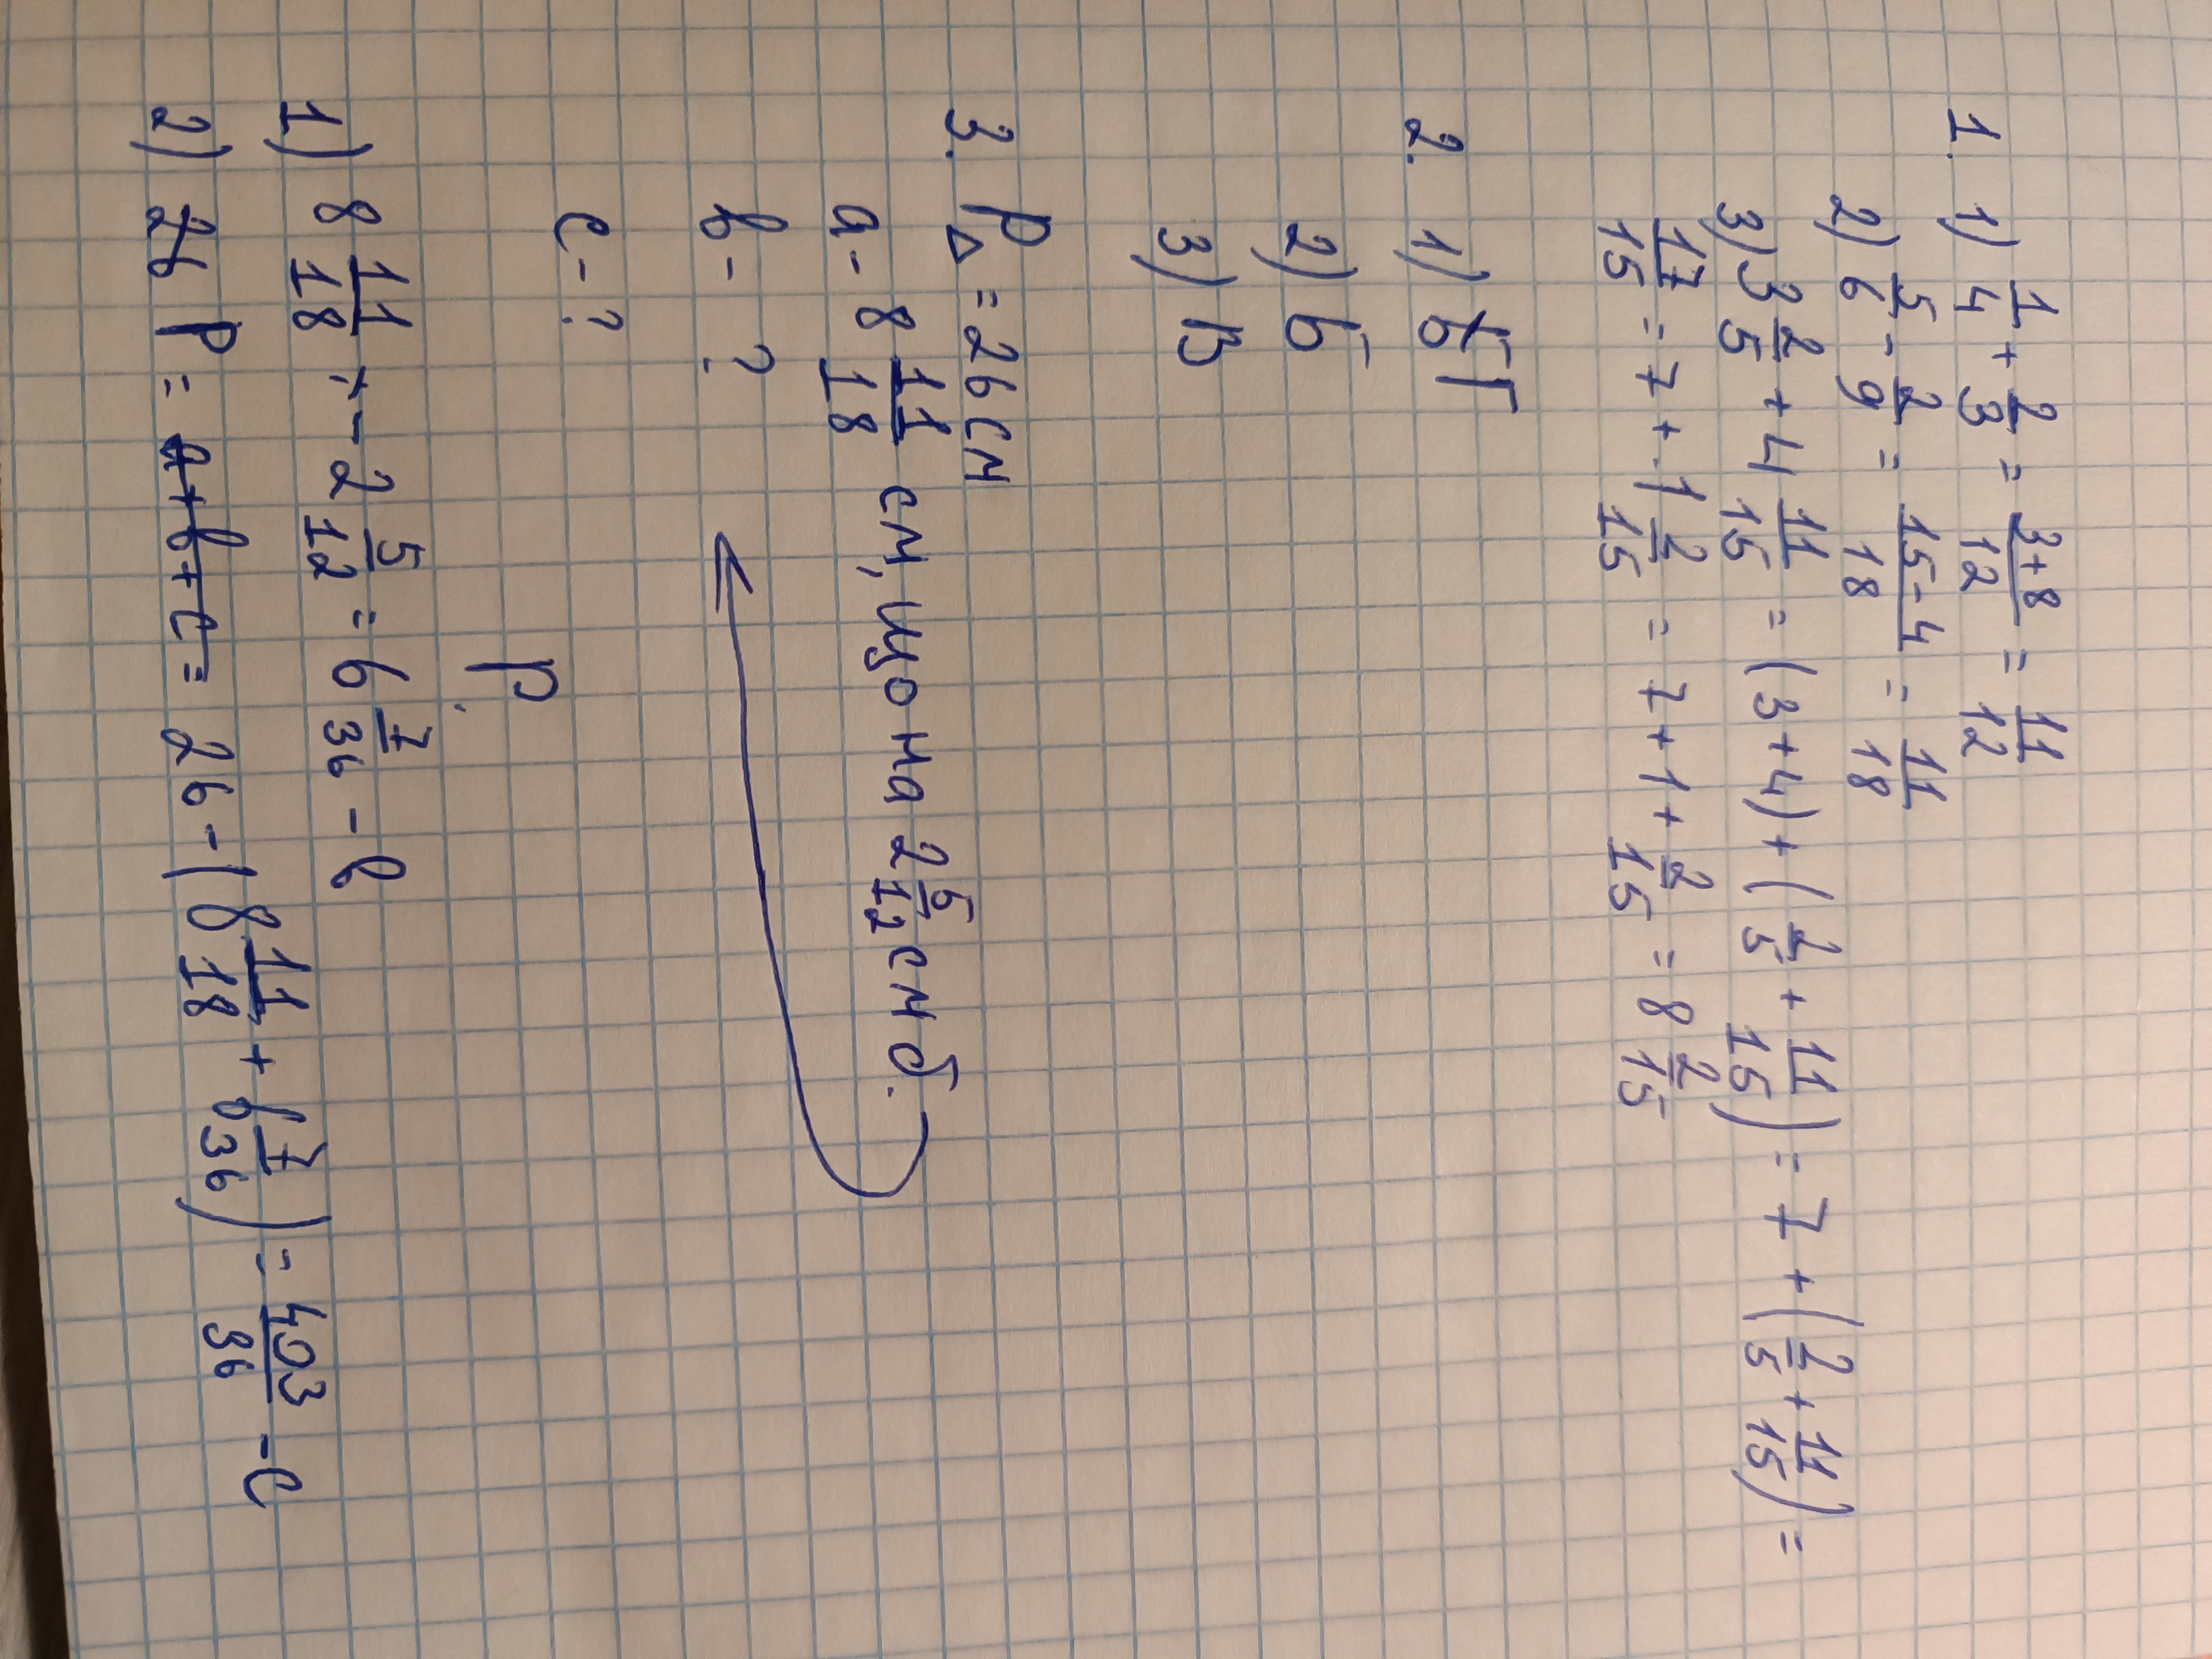 1. 1) 1/4 + 2/3 = (3+8)/12 = 11/12
2) 5/6 - 2/9 = (15-4)/18 = 11/18
3) 3 2/5 + 4 11/15 = (3+4) + (2/5 + 11/15) = 7 + (2/5 + 11/15) =
17/15 = 7 + 1 2/15 = 7 + 1 + 2/15 = 8 2/15
2. 1) Г
2) б
3) В
3. P△ = 26 см
a - 8 11/18 см, що на 2 5/12 см б.
b - ?
c - ?
P.
1) 8 11/18 - 2 5/12 = 6 7/36 - b
2) P = a+b+c = 26 - (8 11/18 + 6 7/36) = 403/36 - c